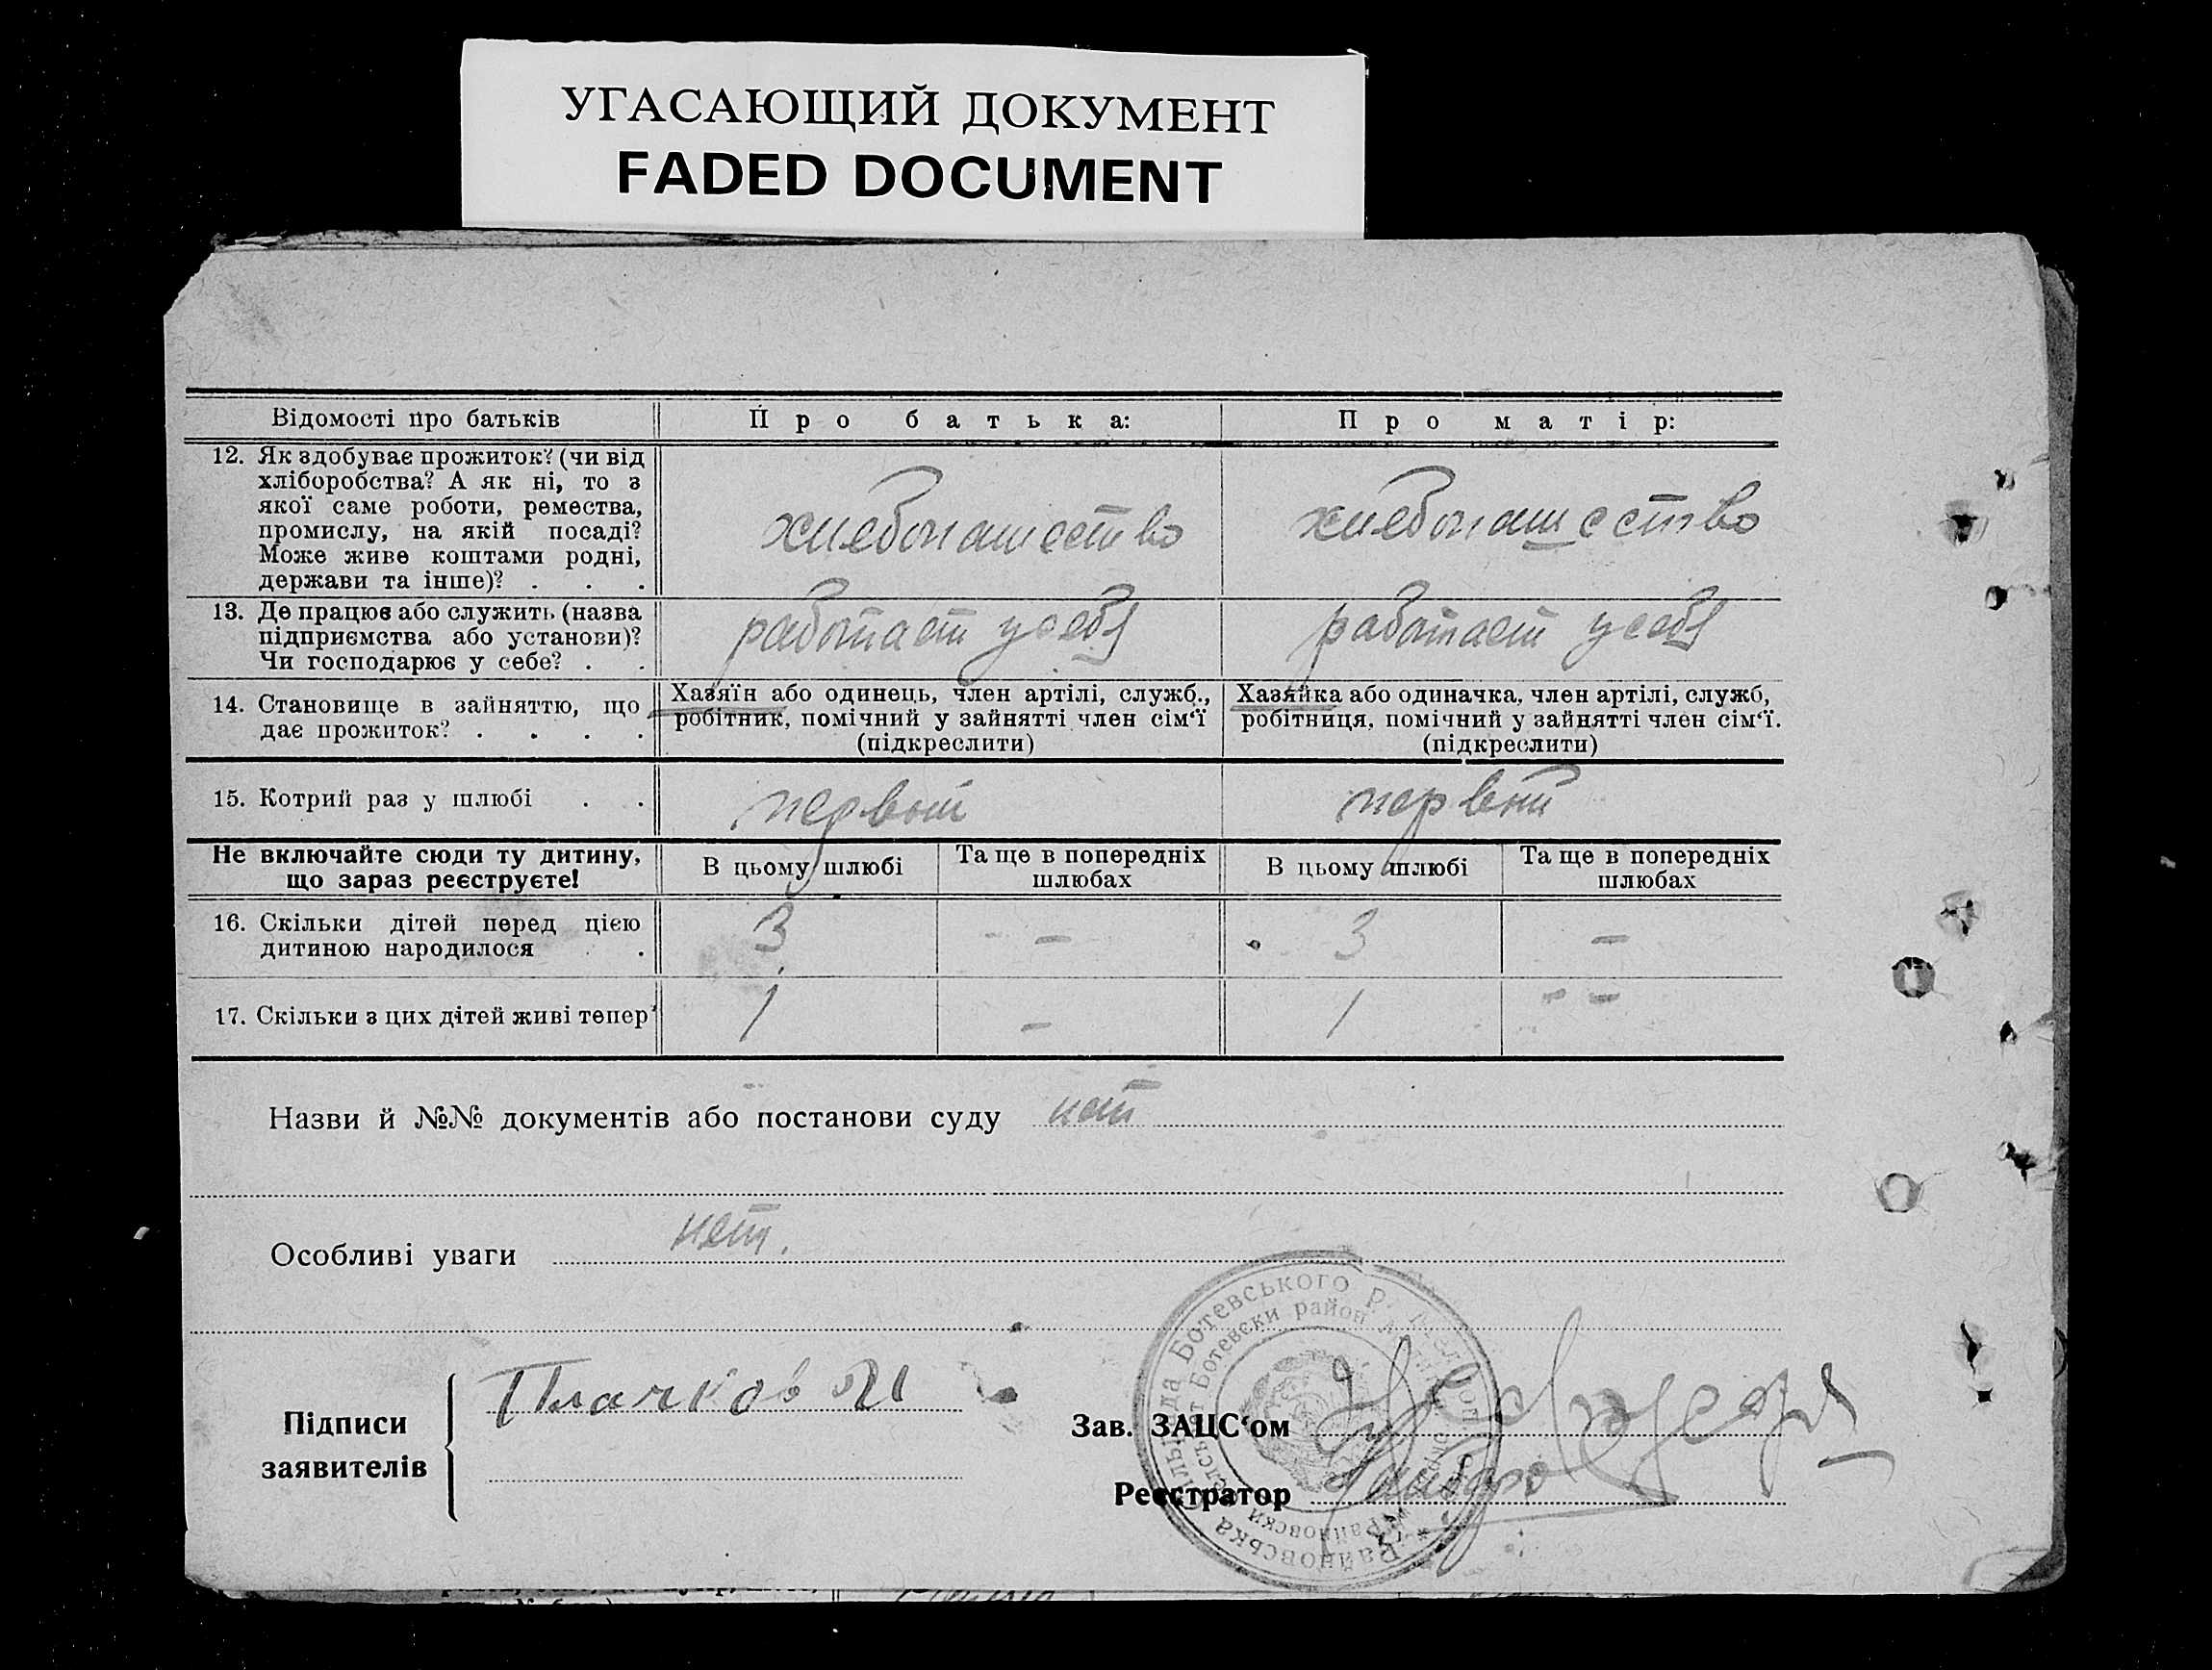 УГАСАЮЩИЙ ДОКУМЕНТ
FADED DOCUMENT
Відомості про батьків
Про батька:
Про матір:
12. Як здобуває прожиток? (чи від
хліборобства? А як ні, то з
якої саме роботи, ремества,
промислу, на якій посаді?
Може живе коштами родні,
держави та інше)? . . .
хлебопашество
хлебопашество
13. Де працює або служить (назва
підприємства або установи)?
Чи господарює у себе? . .
работает у себя
работает у себя
14. Становище в зайняттю, що
дає прожиток? . . . .
Хазяїн або одинець, член артілі, служб.,
робітник, помічний у зайнятті член сім‘ї
(підкреслити)
Хазяйка або одиначка, член артілі, служб,
робітниця, помічний у зайнятті член сім‘ї.
(підкреслити)
15. Котрий раз у шлюбі . .
первый
первый
Не включайте сюди ту дитину,
що зараз реєструєте!
В цьому шлюбі
Та ще в попередніх
шлюбах
В цьому шлюбі
Та ще в попередніх
шлюбах
16. Скільки дітей перед цією
дитиною народилося .
3 — 3 —
17. Скільки з цих дітей живі тепер
1 — 1 —
Назви й №№ документів або постанови суду нет
Особливі уваги нет.
Підписи
заявителів
Плачков
Зав. ЗАЦС‘ом
Реєстратор
Ботевського Р.
Ботевски район
Райновська
Райновски